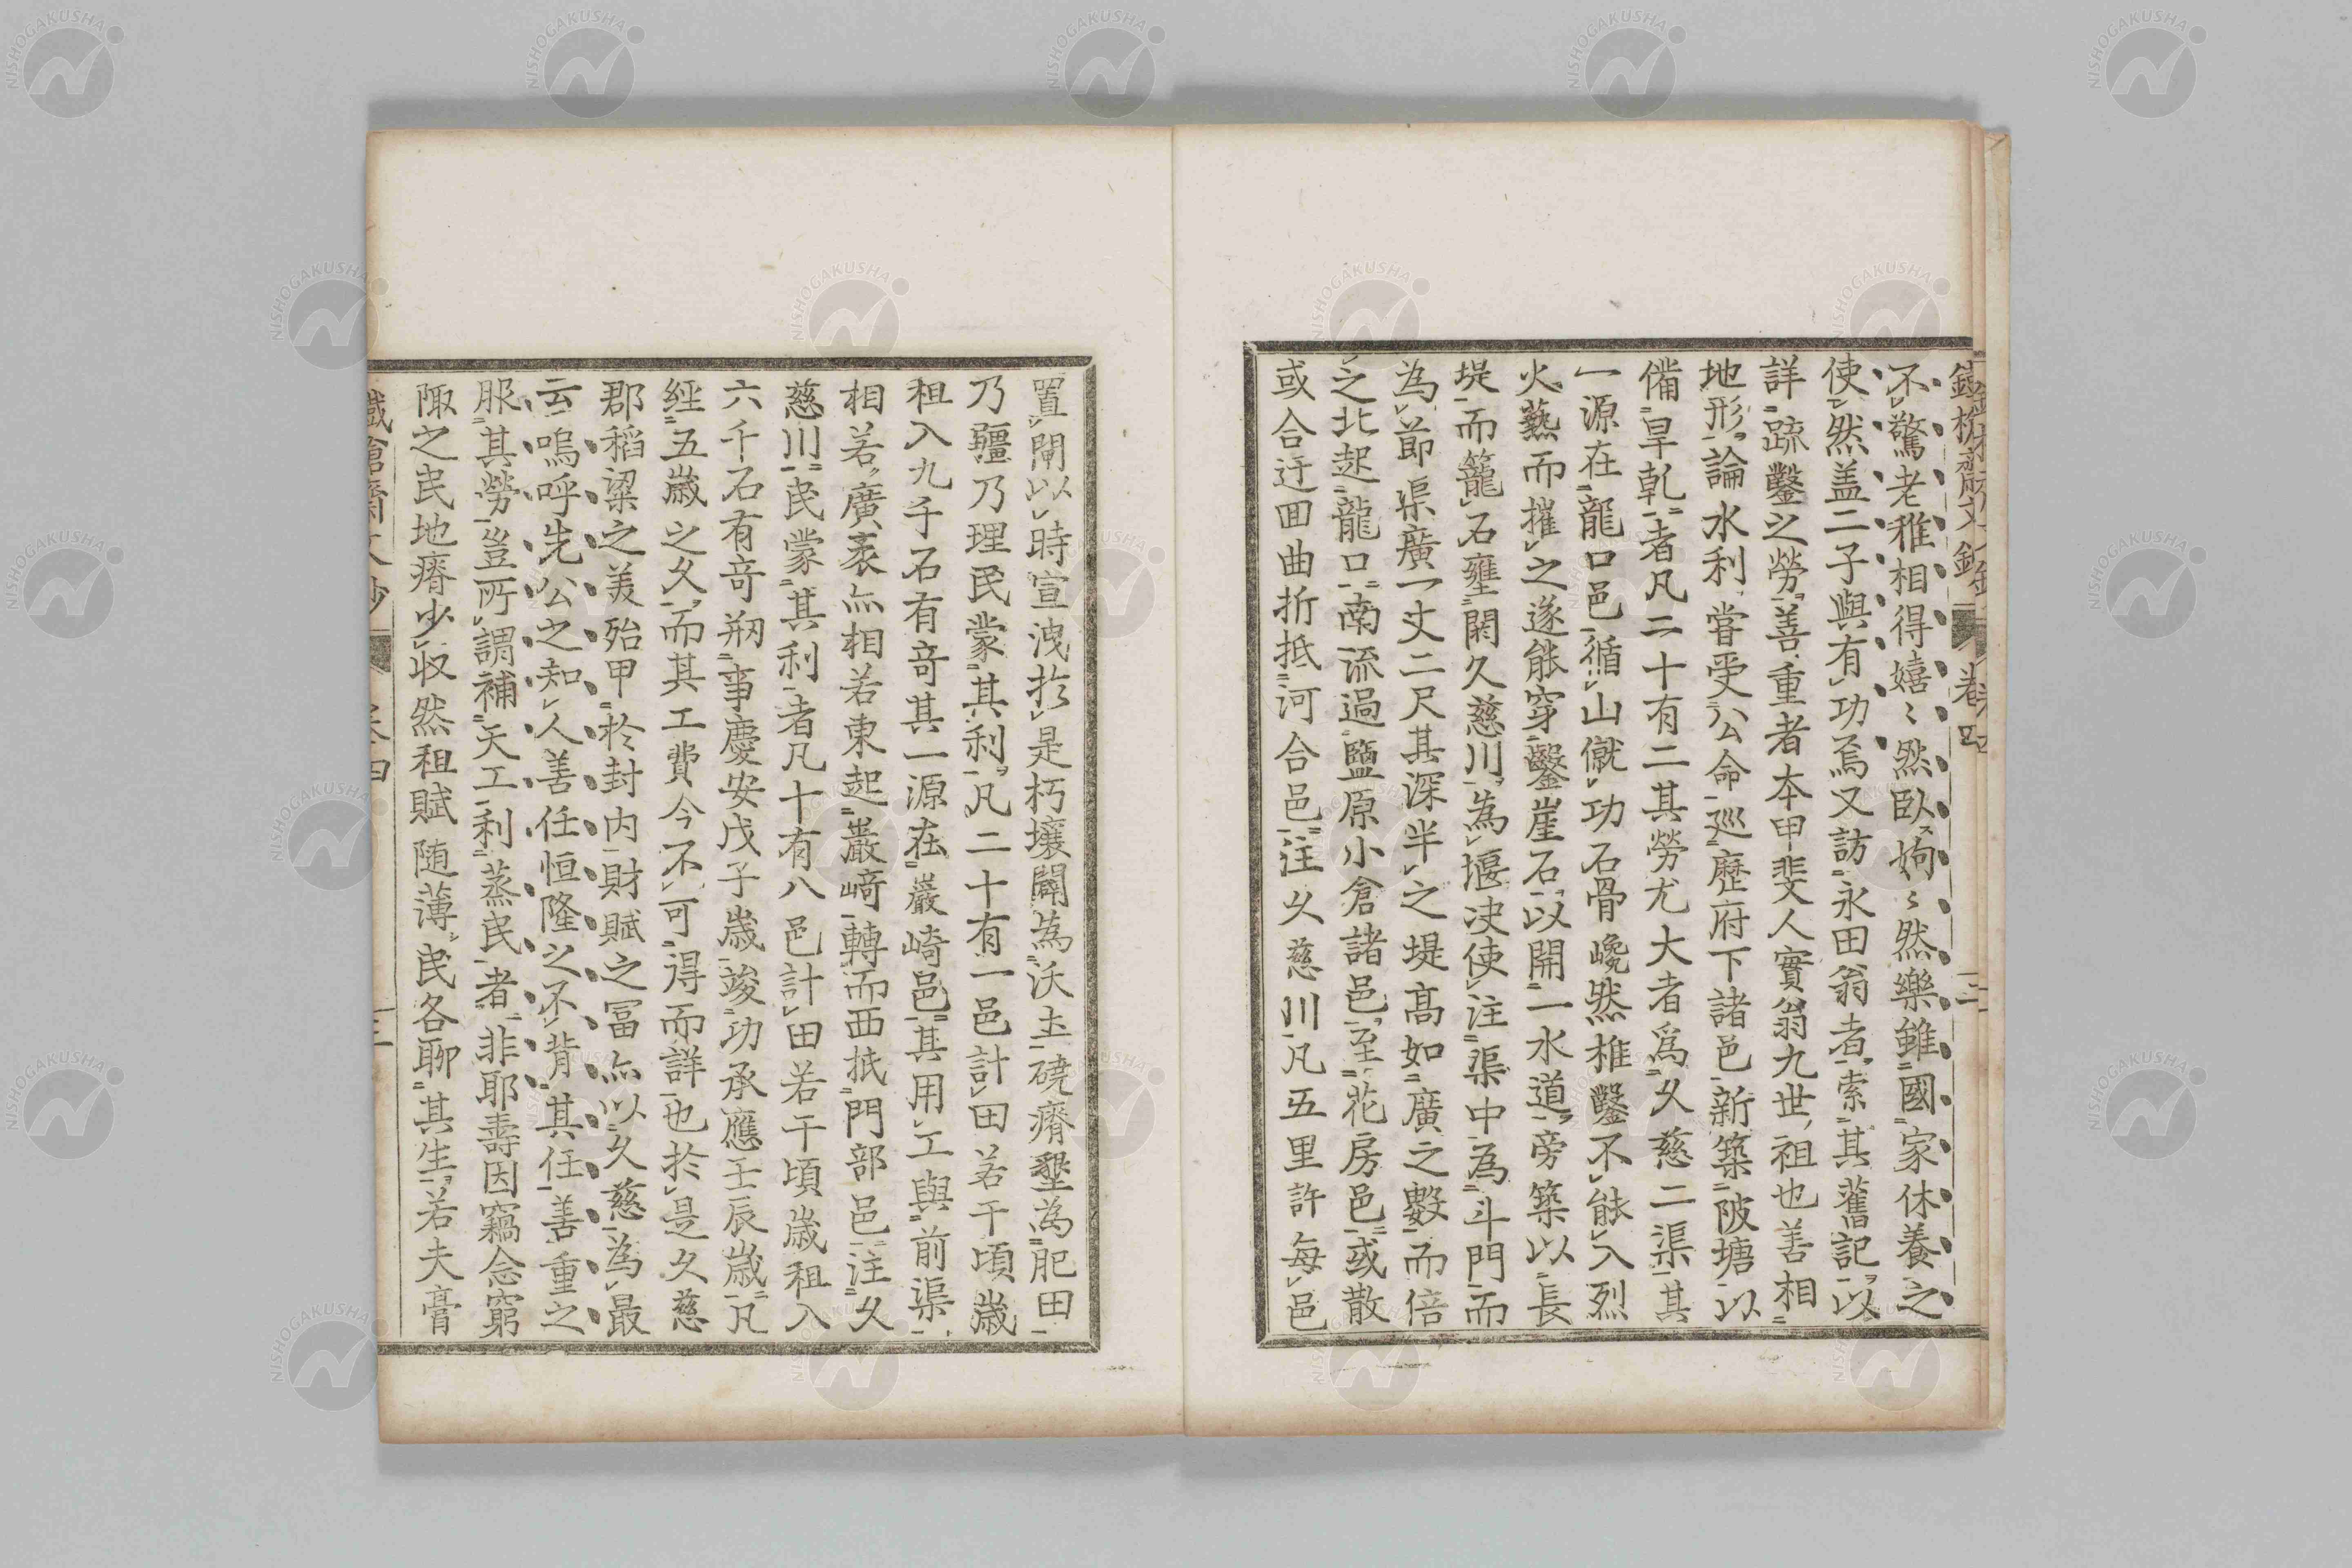 不驚老稚相得嬉〻然臥姁〻然樂雖國家休養之
使然盖二子與有功焉又訪永田翁者索其舊記以
詳疏鑿之勞善重者本甲斐人實翁九世祖也善相
地形論水利嘗受公命巡歷府下諸邑新築陂塘以
備旱乾者凡二十有二其勞尤大者爲久慈二渠其
一源在龍口邑循山僦功石骨巉然椎鑿不能入烈
火爇而摧之遂能穿鑿崖石以開一水道旁築以長
堤而籠石壅閼久慈川為堰决使注渠中為斗門而
為節渠廣一丈二尺其深半之堤高如廣之數而倍
之北起龍口南流過鹽原小倉諸邑至花房邑或散
或合迂囬曲折抵河合邑注久慈川凡五里許每邑
置閘以時宣洩於是朽壤闢為沃土磽瘠墾為肥田
乃疆乃理民蒙其利凡二十有一邑計田若干頃歲
租入九千石有奇其一源在巖崎邑其用工與前渠
相若廣袤亦相若東起巖崎轉而西抵門部邑注久
慈川民蒙其利者凡十有八邑計田若干頃歲租入
六千石有奇刱事慶安戊子歲竣功承應壬辰歲凡
經五歲之久而其工費今不可得而詳也於是久慈
郡稻粱之美殆甲於封内財賦之冨亦以久慈為最
云嗚呼先公之知人善任恒隆之不背其任善重之
服其勞豈所謂補天工利蒸民者非耶壽因竊念窮
陬之民地瘠少収然租賦随薄民各聊其生若夫膏
卷四
三